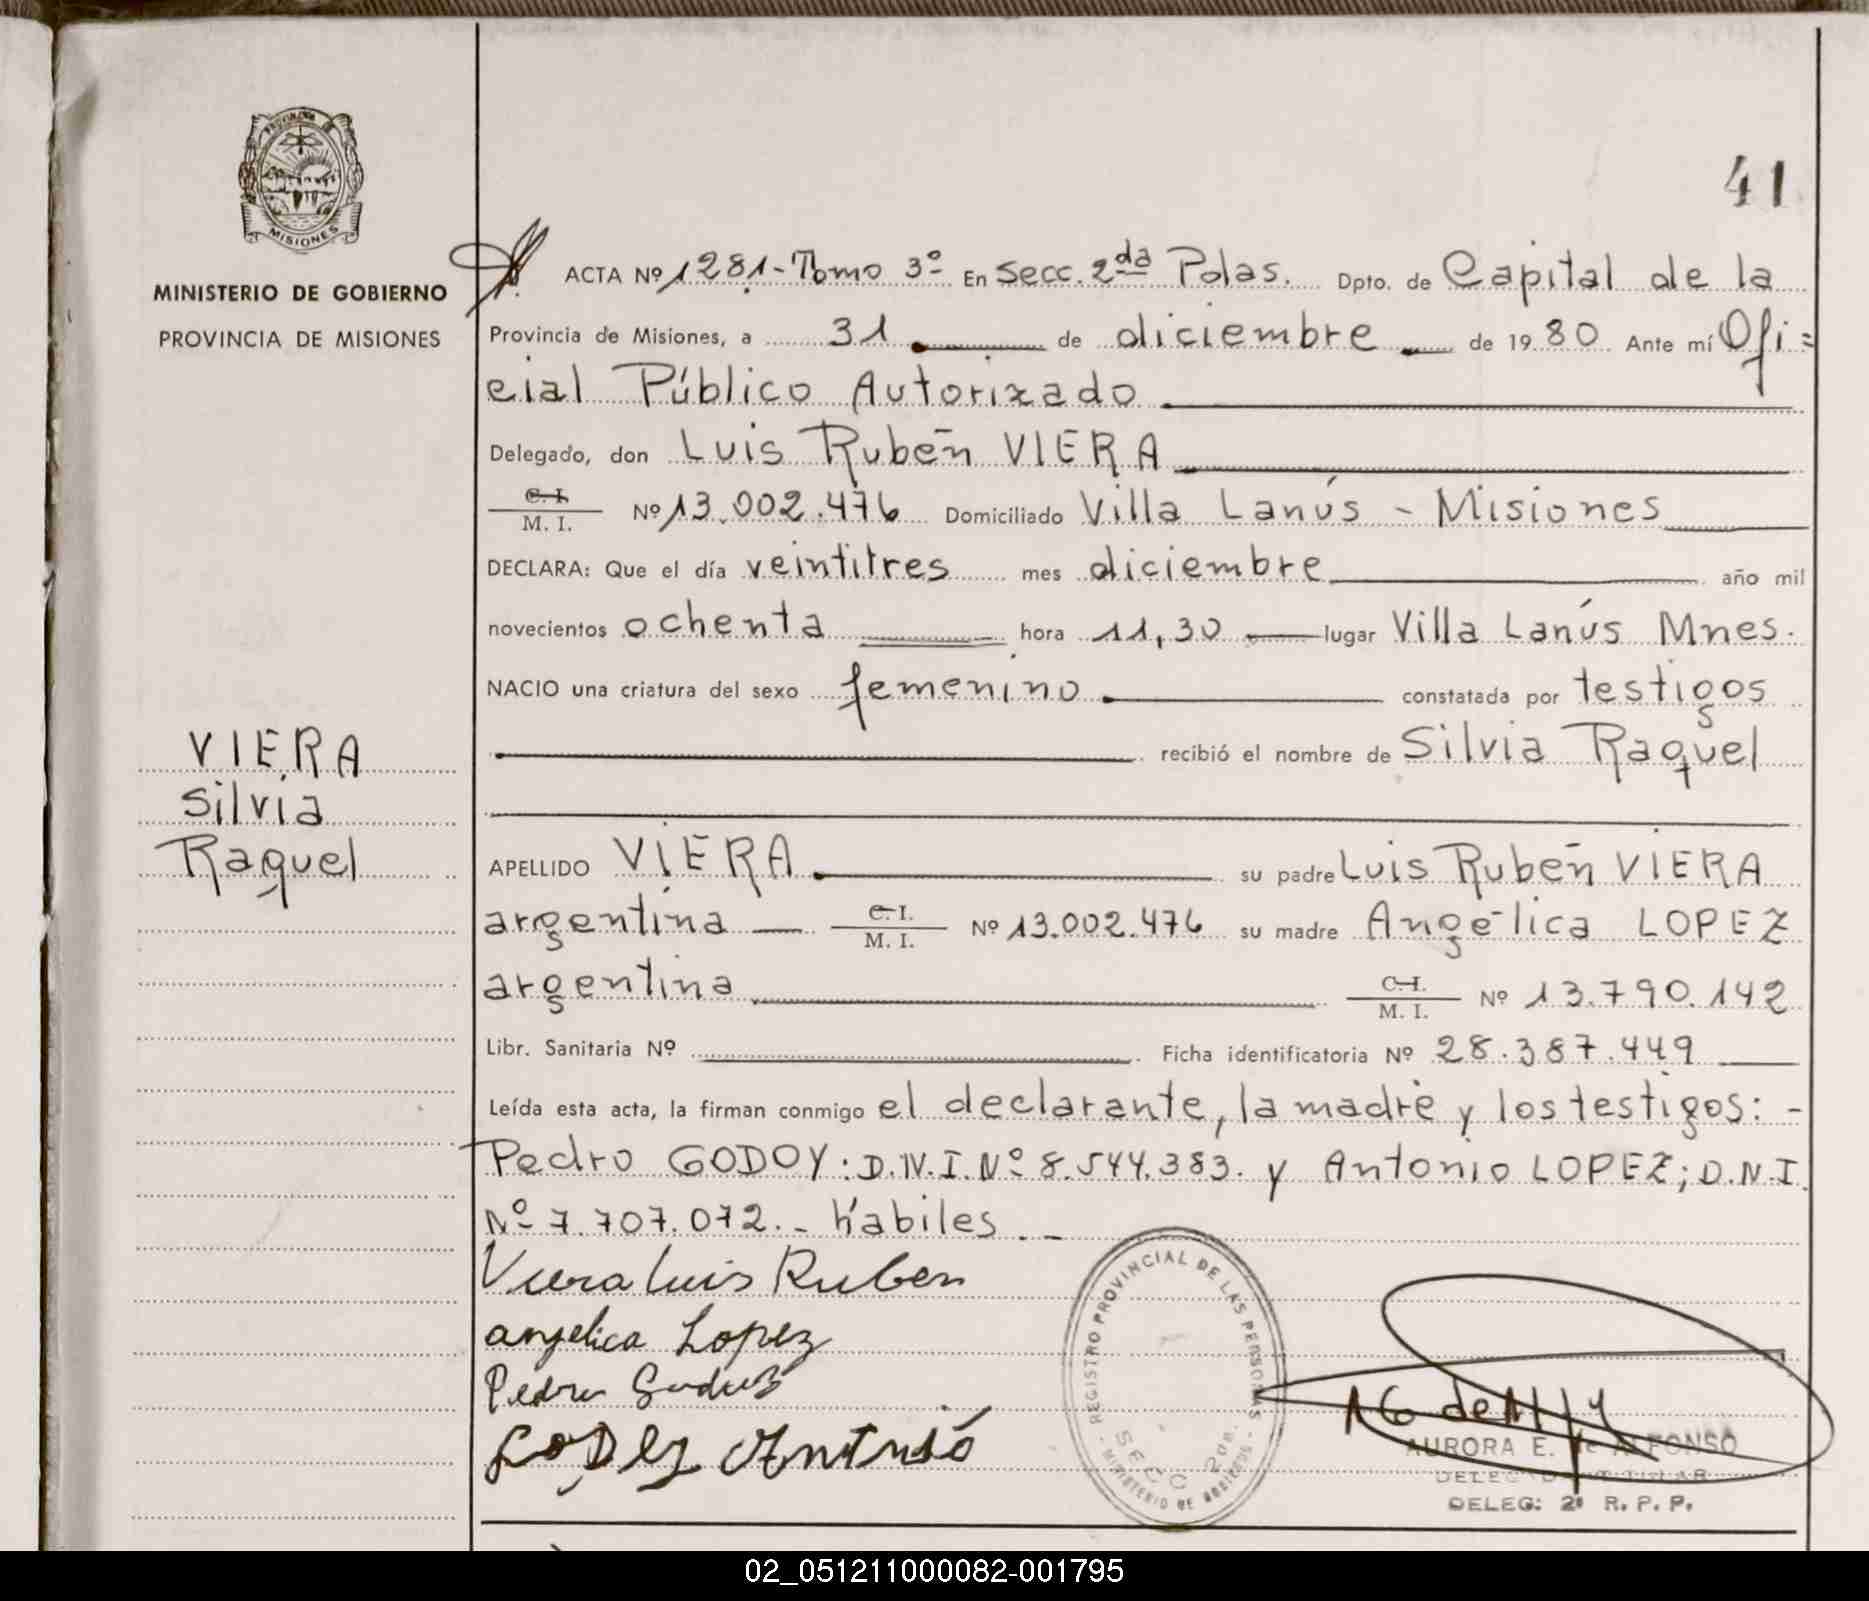 41
PROVINCIA DE
MISIONES
MINISTERIO DE GOBIERNO
PROVINCIA DE MISIONES
ACTA Nº 1281 - Tomo 3º En Secc. 2da Pdas. Dpto. de Capital de la
Provincia de Misiones, a 31 de diciembre de 1980 Ante mí Ofi=
cial Público Autorizado
Delegado, don Luis Rubén VIERA
C. I.
M. I. Nº 13.002.476 Domiciliado Villa Lanús - Misiones
DECLARA: Que el día veintitres mes diciembre año mil
novecientos ochenta hora 11,30 lugar Villa Lanús Mnes.
NACIO una criatura del sexo femenino constatada por testigos
recibió el nombre de Silvia Raquel
VIERA
Silvia
Raquel
APELLIDO VIERA su padre Luis Rubén VIERA
argentina C. I.
M. I. Nº 13.002.476 su madre Angélica LOPEZ
argentina C. I.
M. I. Nº 13.790.142
Libr. Sanitaria Nº Ficha identificatoria Nº 28.387.449
Leída esta acta, la firman conmigo el declarante, la madre y los testigos: -
Pedro GODOY: D.N.I. Nº 8.544.383. y Antonio LOPEZ; D.N.I.
Nº 7.707.072. - hábiles. -
Viera Luis Ruben
angelica Lopez
Pedro
Lopez Antonio
REGISTRO PROVINCIAL DE LAS PERSONAS
SECC 2da.
MINISTERIO DE GOBIERNO
AURORA E. de ALFONSO
DELEGADO TITULAR
DELEG: 2ª R. P. P.
02_051211000082-001795